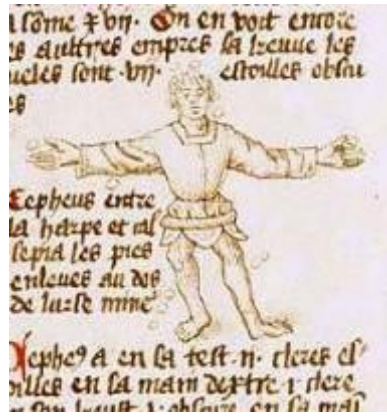 a some xvij. On en voit encore
es aultres empres sa
sont .vij. estoilles obscu
es
Cepheus entre
la harpe et cal
sepia les pies
enleues au dos
de lurse mine
Cephe⁹ a en sa test .ij. cleres es
oilles en sa main dextre .i. clere
obscure en sa mai